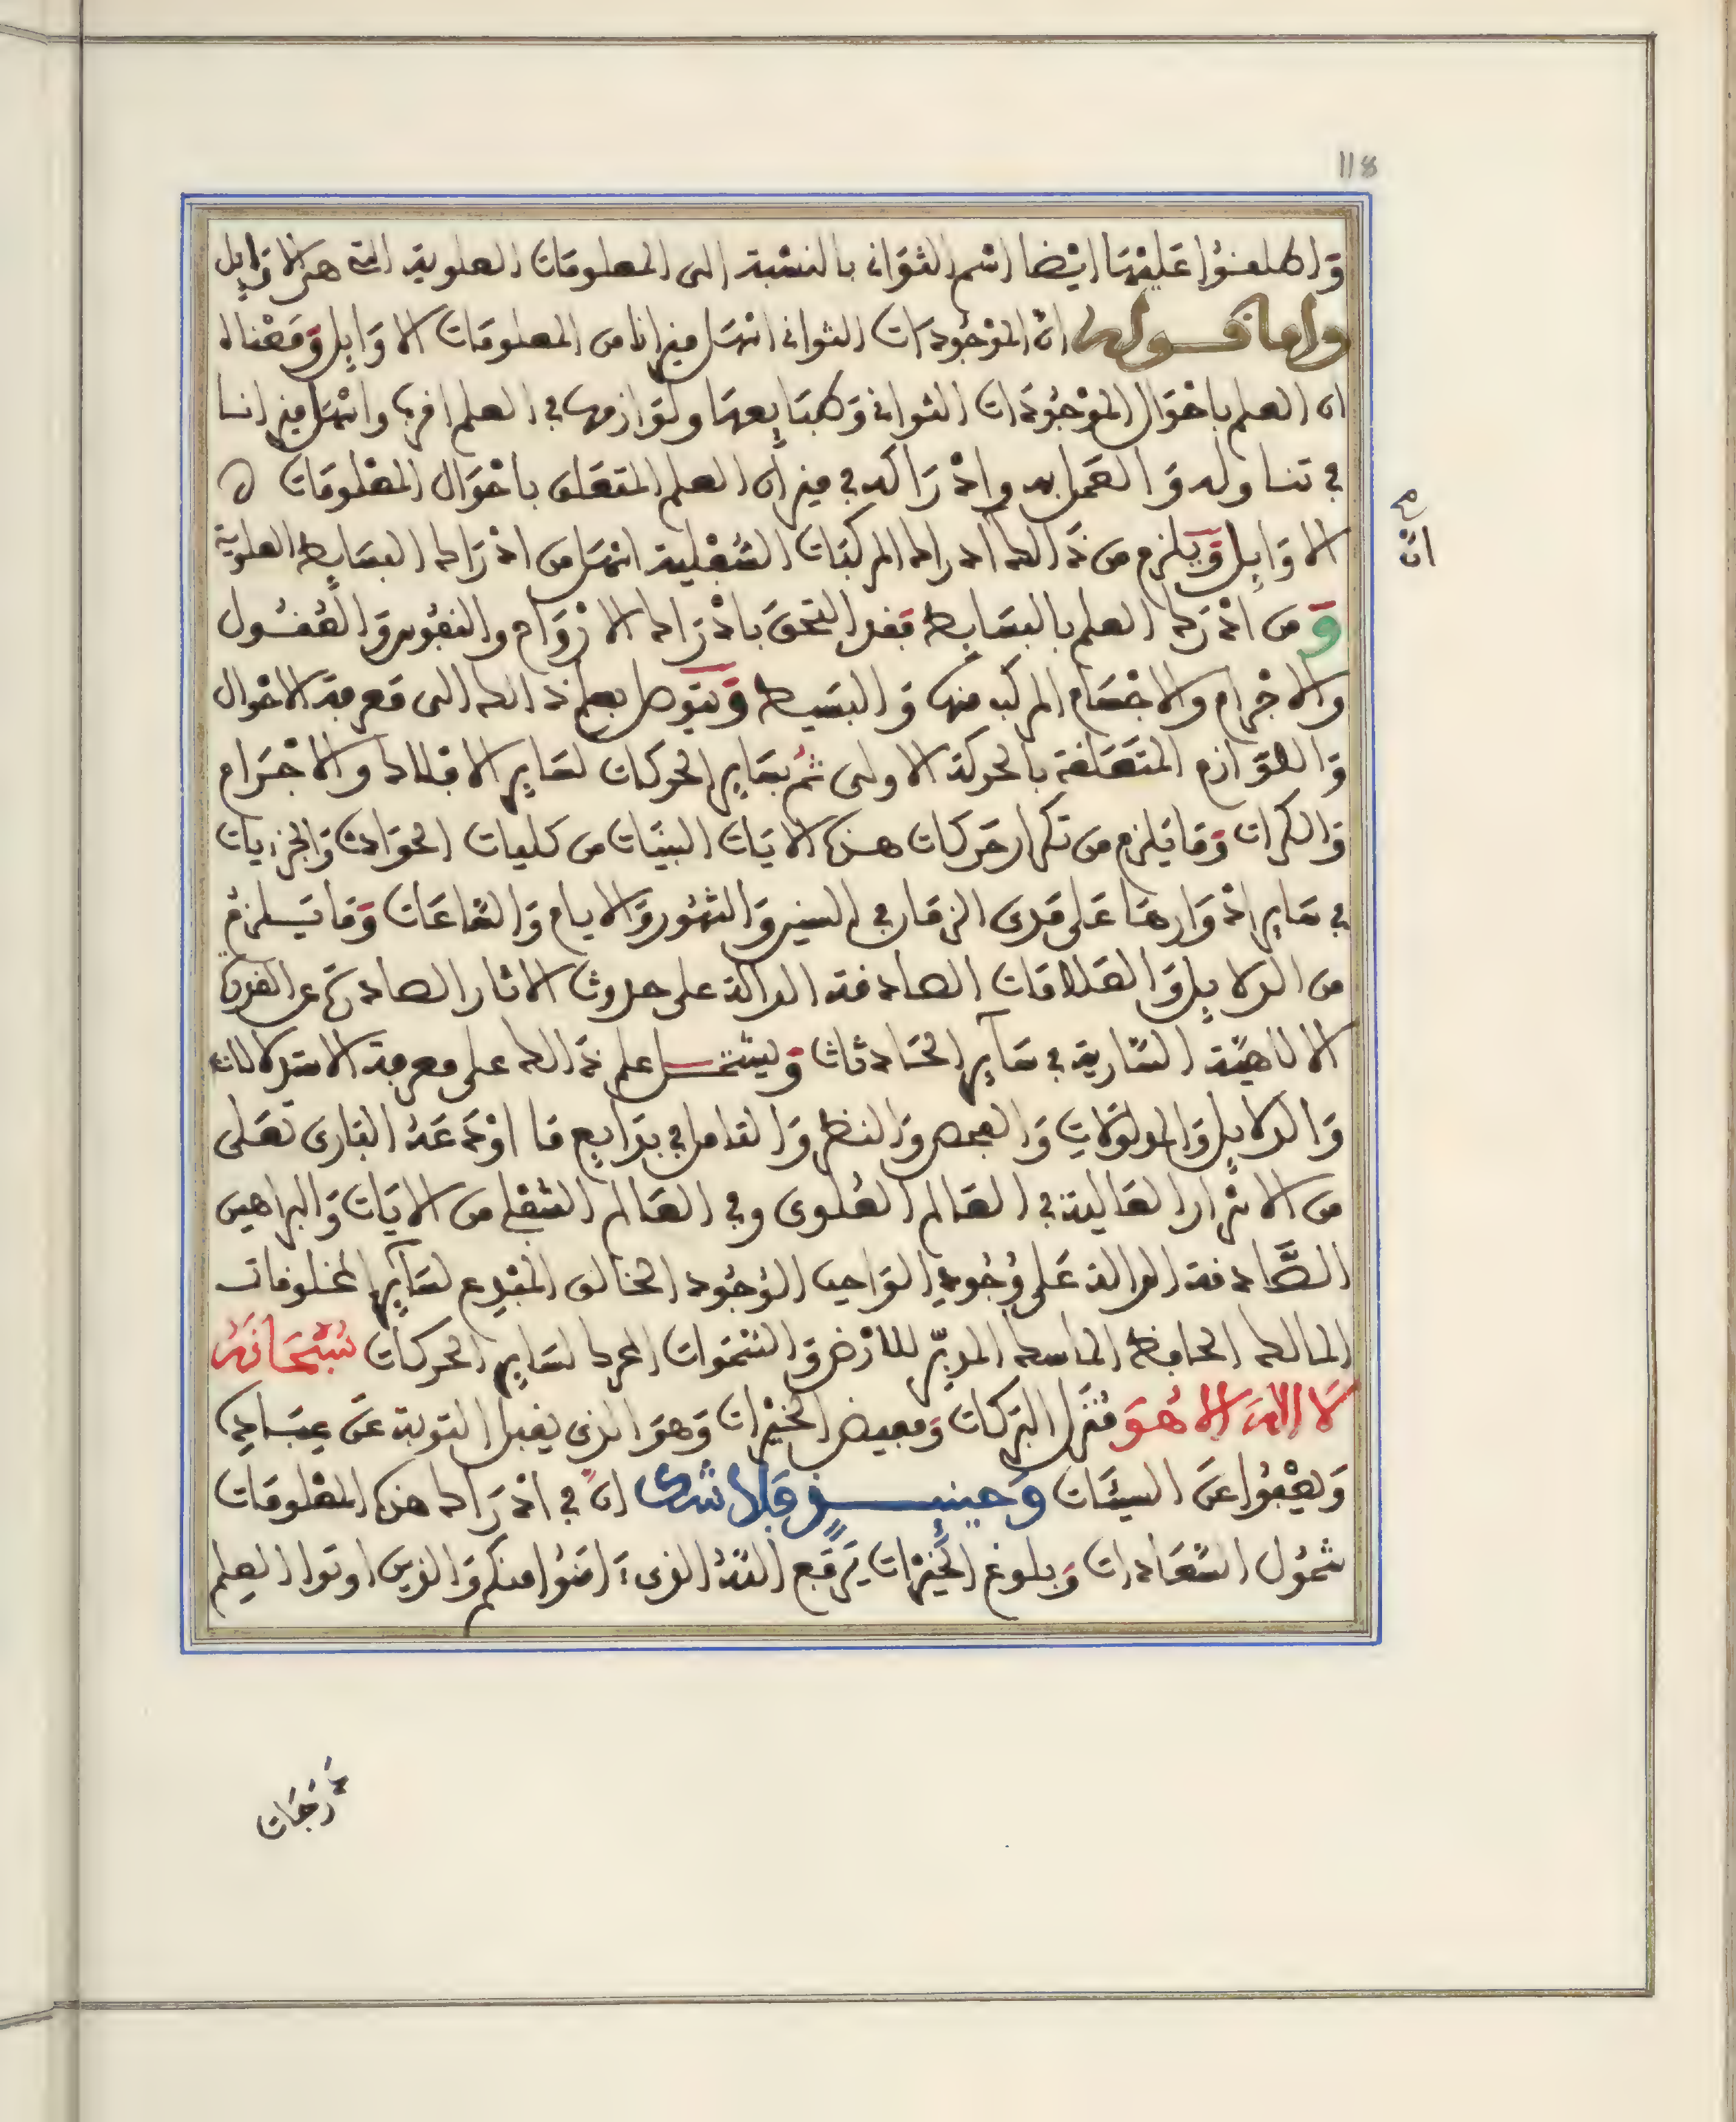 118
وَاطلقوا عَليْهَا ايْضا اسْم الثوَانى بالنسْبة الى المعلومَات العلوية التى هى الاوَايل
واما قوله ان الموْجُودات الثوانى اسْهَل ميزانا من المعلومَات الاوَايل وَمَعْناه
ان العلم باحْوَال الموْجُودَات الثوانى وَطبَايعهَا ولوَازمها في العلم اقرب واسْهَل ميزانا
في تناوله وَالعَمل به وادْرَاكه في ميزان العلم المتعَلق باحْوَال المعْلومَات
ان
الاوَايل وَيلزم من ذَالك ادراك المركبَات السُّفْلية اسْهَل من ادْرَاك البسَايط العلوية
وَمن ادْرَك العلم بالبسَايط فقد التحق بادْرَاك الارْوَاح والنفُوس وَالعُقُول
والاجْرام والاجْسَام المركب منها وَالبسَيط وَيتوصل بعلم ذالك الى مَعرفة الاحْوال
وَاللوَازم المتعَلقة بالحركة الاولى ثمُ بسَاير الحركات لسَاير الافلاك والاجْرَام
وَالكرات وَمَا يَلزم من تكرار حَركات هذه الايَات البينَات من كليات الحوَادث وَالجزيات
في سَاير ادْوَارهَا عَلى مَدى الزمَان في السنين وَالشهُور وَالايام وَالسَّاعَات وَمَا يَلزمُ
من الدلايل وَالعَلامَات الصادقة الدالة على حدوث الاثار الصادرة عن القدرة
الالاهيَّة السَّارية في سَآير الحَادثات وَيشْتمل علم ذَالك على معرفة الاستدلالات
وَالدلايل وَالمدلولات وَالفحص وَالنظر وَالتامل في بدَايع مَا اوْدَعَهُ البَارى تعَلى
من الاسْرار العَالية في العَالم العُلوى وفي العَالم السُّفلى من الايَات وَالبراهين
الصَّادقة الدالة عَلى وُجُودِ الوَاجب الوُجُود الخالق المبْدِع لسَآير المخلوقات
المالك الحافظ الماسك المدبّر للارْض وَالسَّمَوات المحرك لسَايرِ الحركات سُبْحَانَهُ
لَا اِلاهَ اِلا هُوَ مُنَزل البَركات وَمفيض الخيْرات وَهوَ الذى يقبل التوبة عَنْ عِبَادِه
وَيعْفُوا عَنِ السيئَات وَحِينئِذٍ فلا شك انَّ في ادْرَاك هذه المعْلومَات
شمُول السَّعَادات وَبلوغ الخيْرَات يَرفع اللهُ الذين ءَامَنُوا منكم وَالذين اوتوا العِلم
دَرَجَات